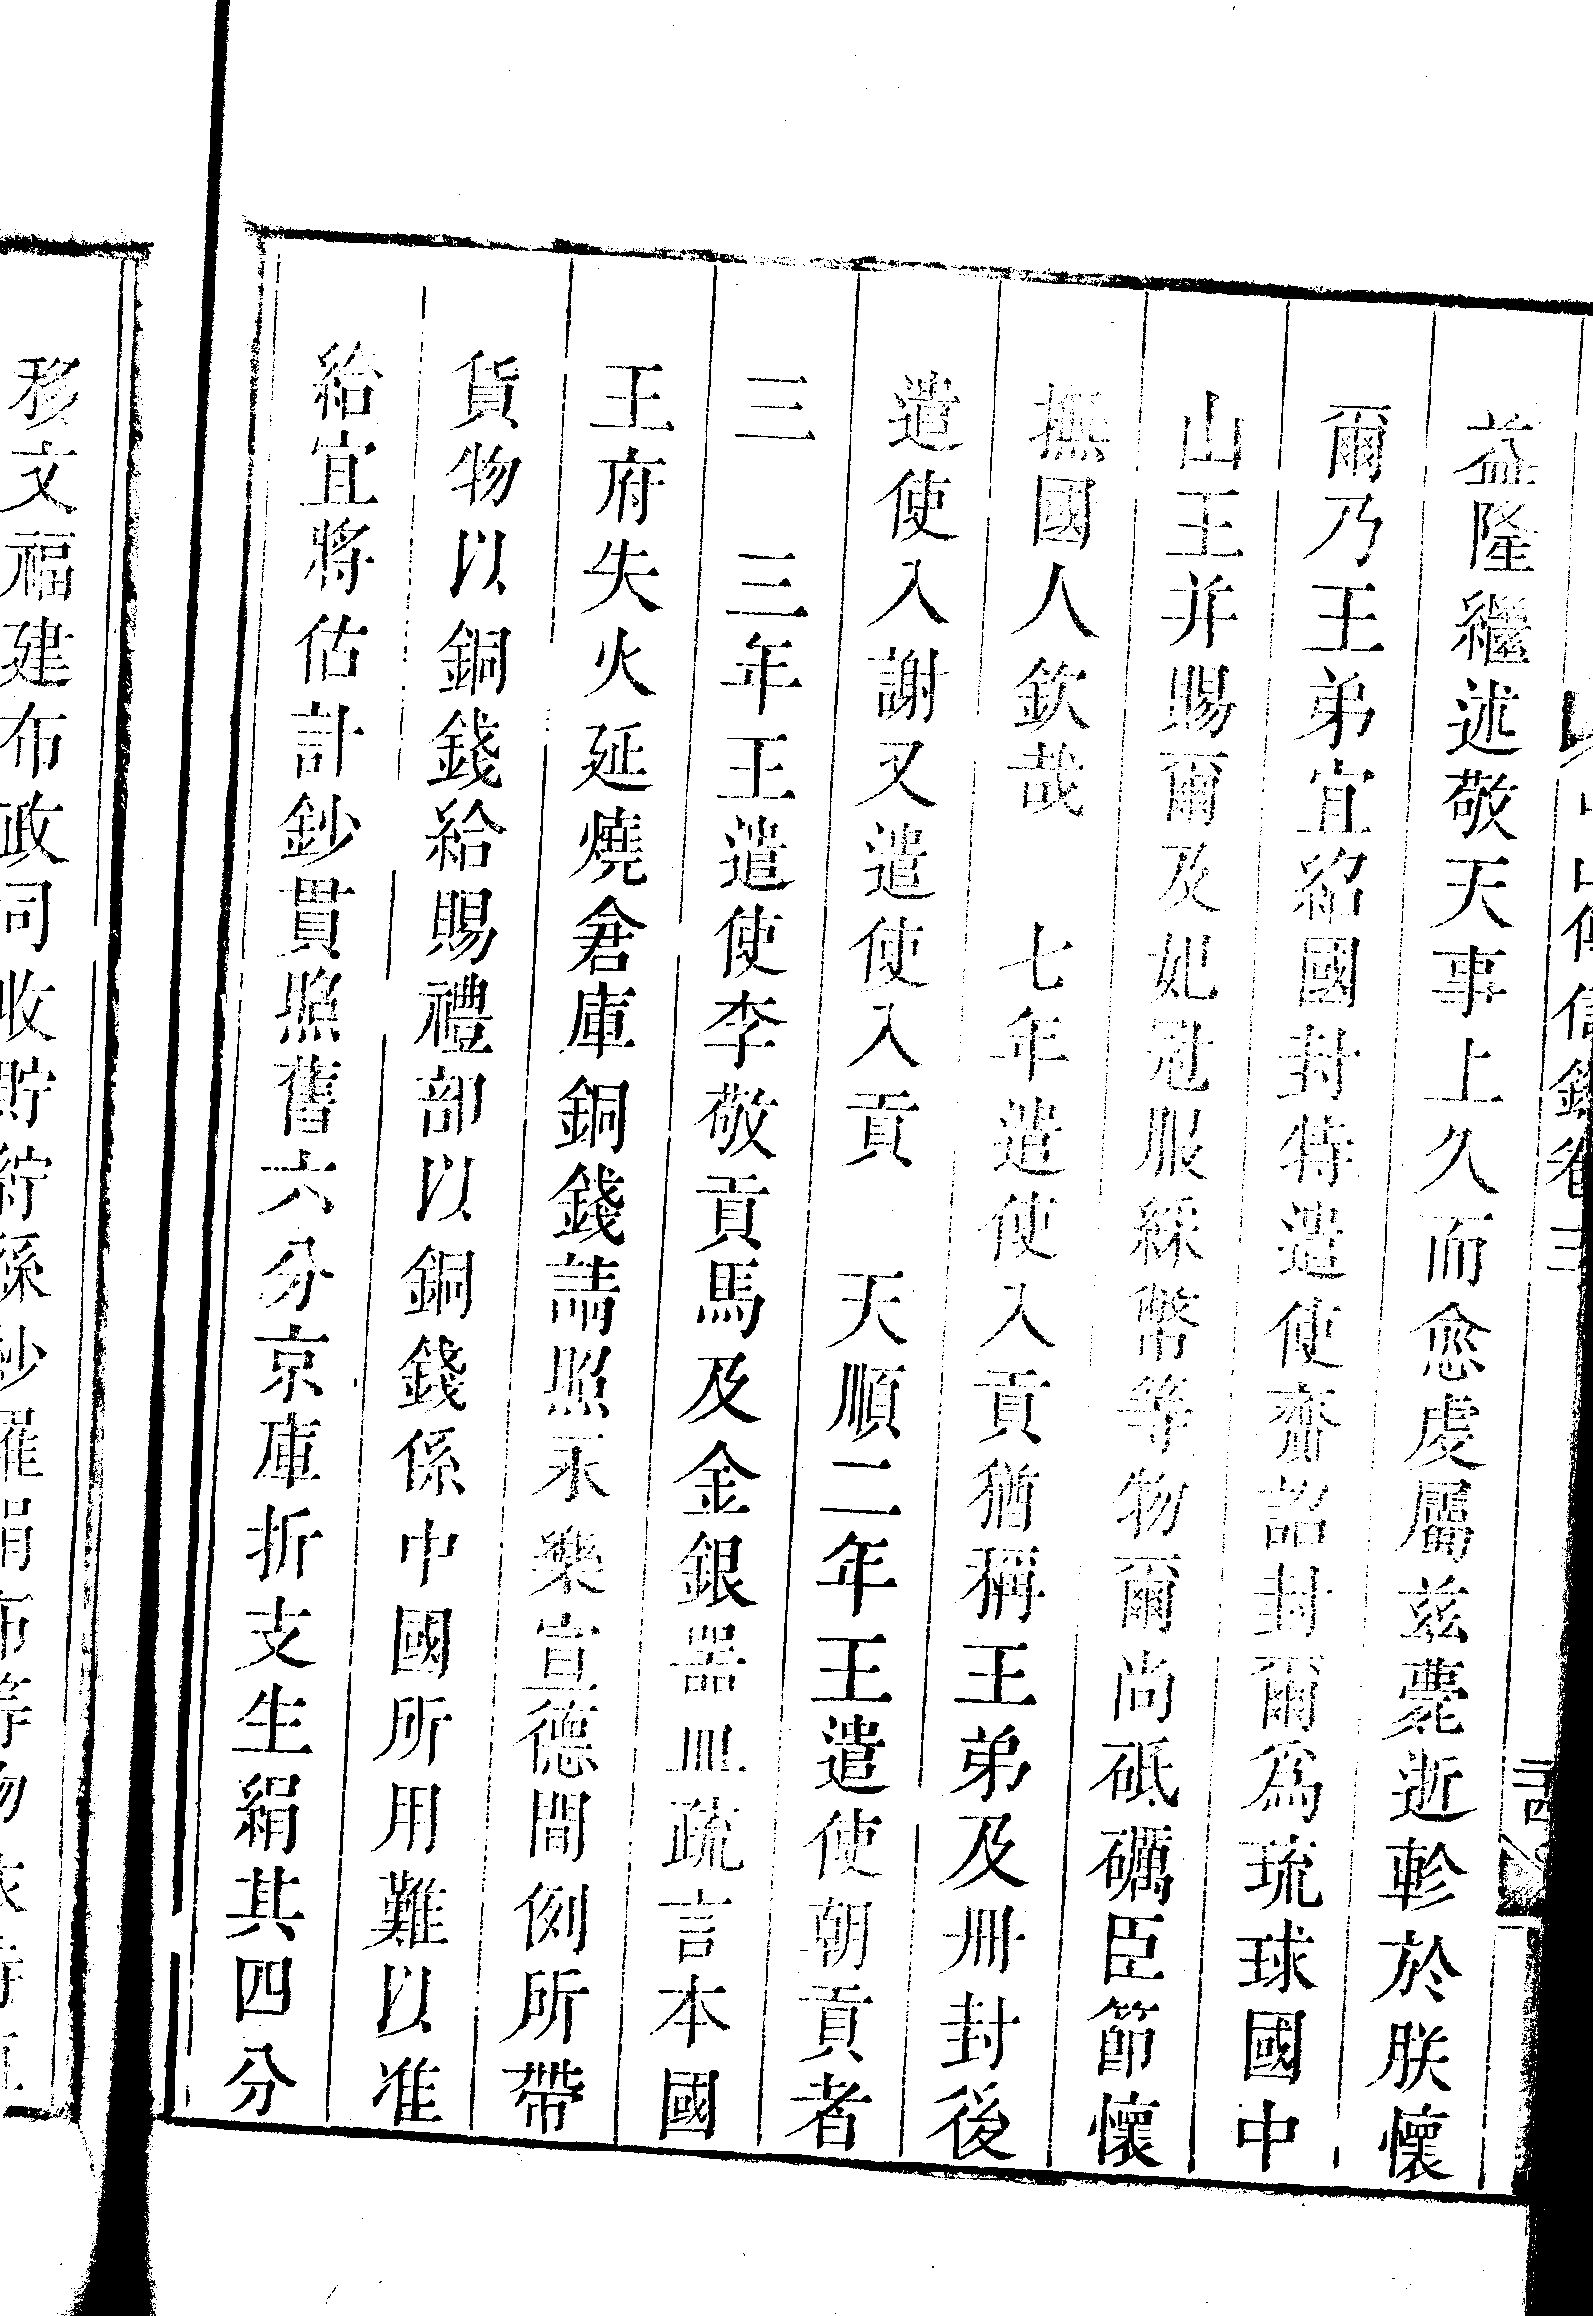 中山傳信錄卷三
益隆繼述敬天事上久而愈虔屬兹薨逝軫於朕懷
爾乃王弟宜紹國封特遣使齎詔封爾爲琉球國中
山王并賜爾及妃冠服綵幣等物爾尚砥礪臣節懷
撫國人欽哉　七年遣使入貢猶稱王弟及冊封後
遣使入謝又遣使入貢　天順二年王遣使朝貢者
三　三年王遣使李敬貢馬及金銀器皿疏言本國
王府失火延燒倉庫銅錢請照永樂宣德間例所帶
貨物以銅錢給賜禮部以銅錢係中國所用難以准
給宜將估計鈔貫照舊六分京庫折支生絹其四分
移文福建布政司收貯紵絲紗羅絹布等物